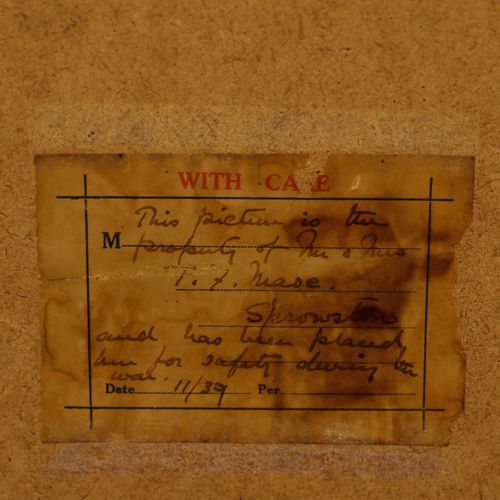 WITH CA E
This picture is the
M property of Mr & Mrs
Sprowston
and has been placed
here for safety during the
war.
Date 11/39 Per